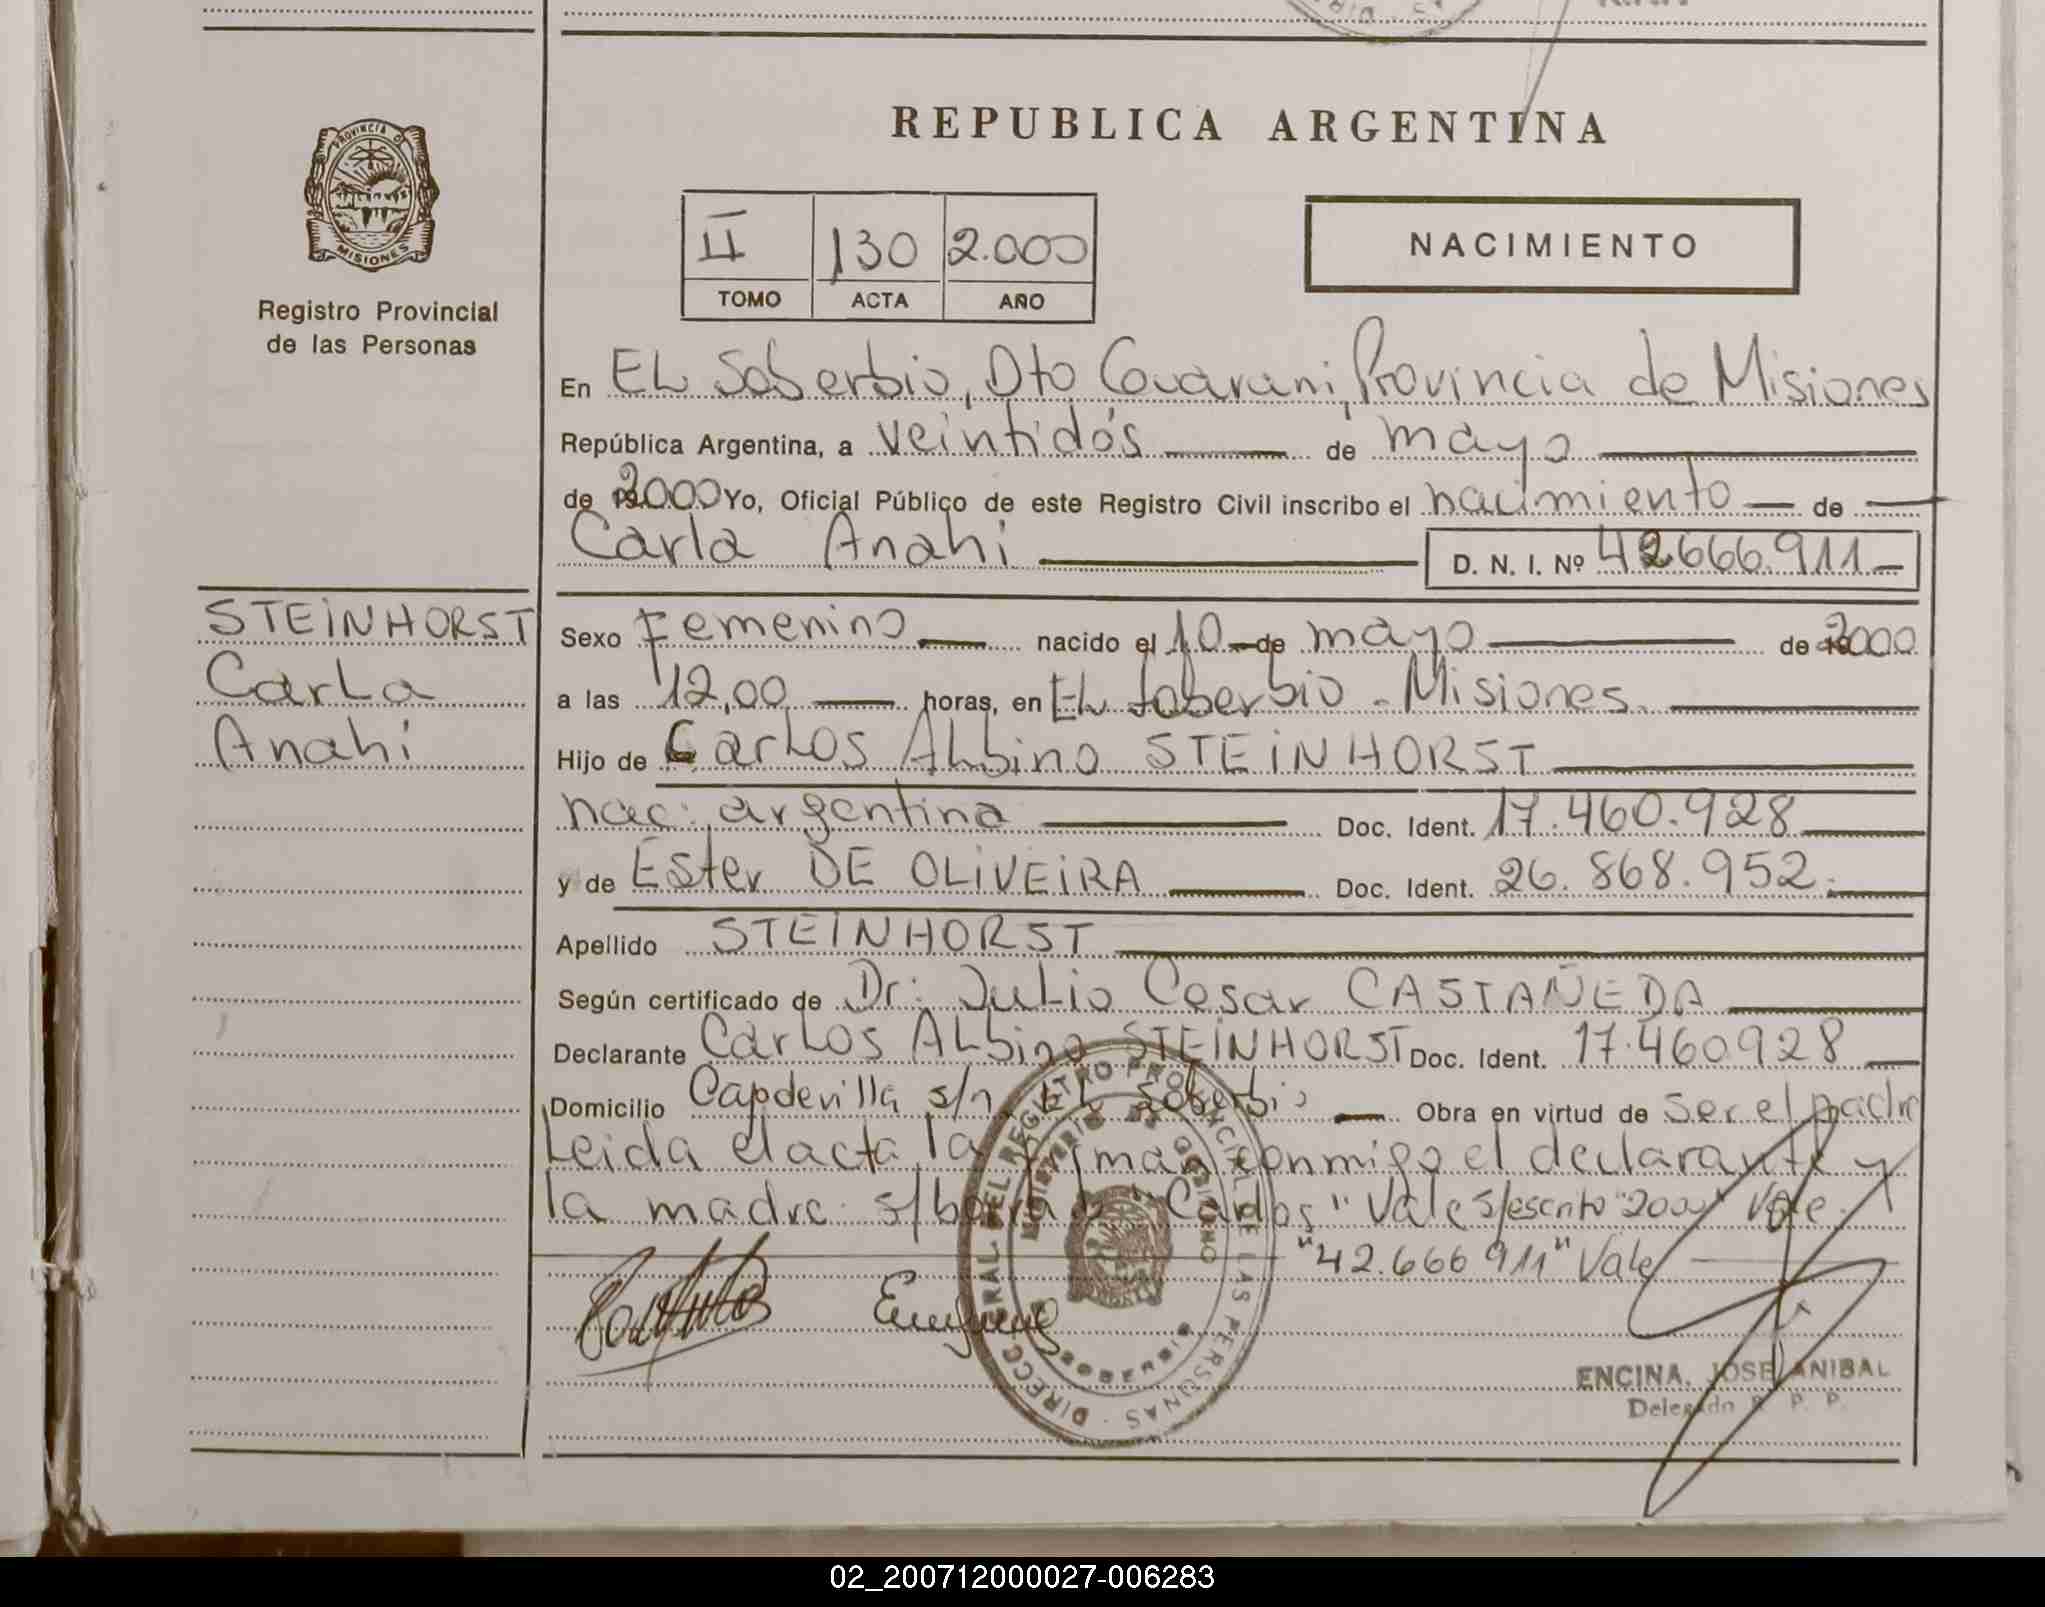 REPUBLICA ARGENTINA
PROVINCIA D
MISIONES
Registro Provincial
de las Personas
II 130 2.000
TOMO ACTA AÑO
NACIMIENTO
En EL Soberbio, Dto Guarani, Provincia de Misiones
República Argentina, a veintidós de mayo
de 2000 Yo, Oficial Público de este Registro Civil inscribo el nacimiento de
Carla Anahi D. N. I. Nº 42666.911
STEINHORST
Carla
Anahi
Sexo Femenino nacido el 10 de mayo de 2000
a las 12,00 horas, en EL Soberbio - Misiones.
Hijo de Carlos Albino STEINHORST
nac: argentina Doc. Ident. 17.460.928
y de Ester DE OLIVEIRA Doc. Ident. 26.868.952.
Apellido STEINHORST
Según certificado de Dr: Julio Cesar CASTAÑEDA
Declarante Carlos Albino STEINHORST Doc. Ident. 17.460928
Domicilio Capdevilla s/n. EL Soberbio Obra en virtud de ser el padre
Leida el acta, la firman conmigo el declarante y
la madre. s/borrado "Carlos" Vale s/escrito "2000" Vale.
"42.666 911" Vale
DIRECC RAL DEL REGISTRO PROVINCIAL DE LAS PERSONAS
MINISTERIO DE GOBIERNO
SOBERBIO
ENCINA, JOSE ANIBAL
Delegado R. P. P.
02_200712000027-006283